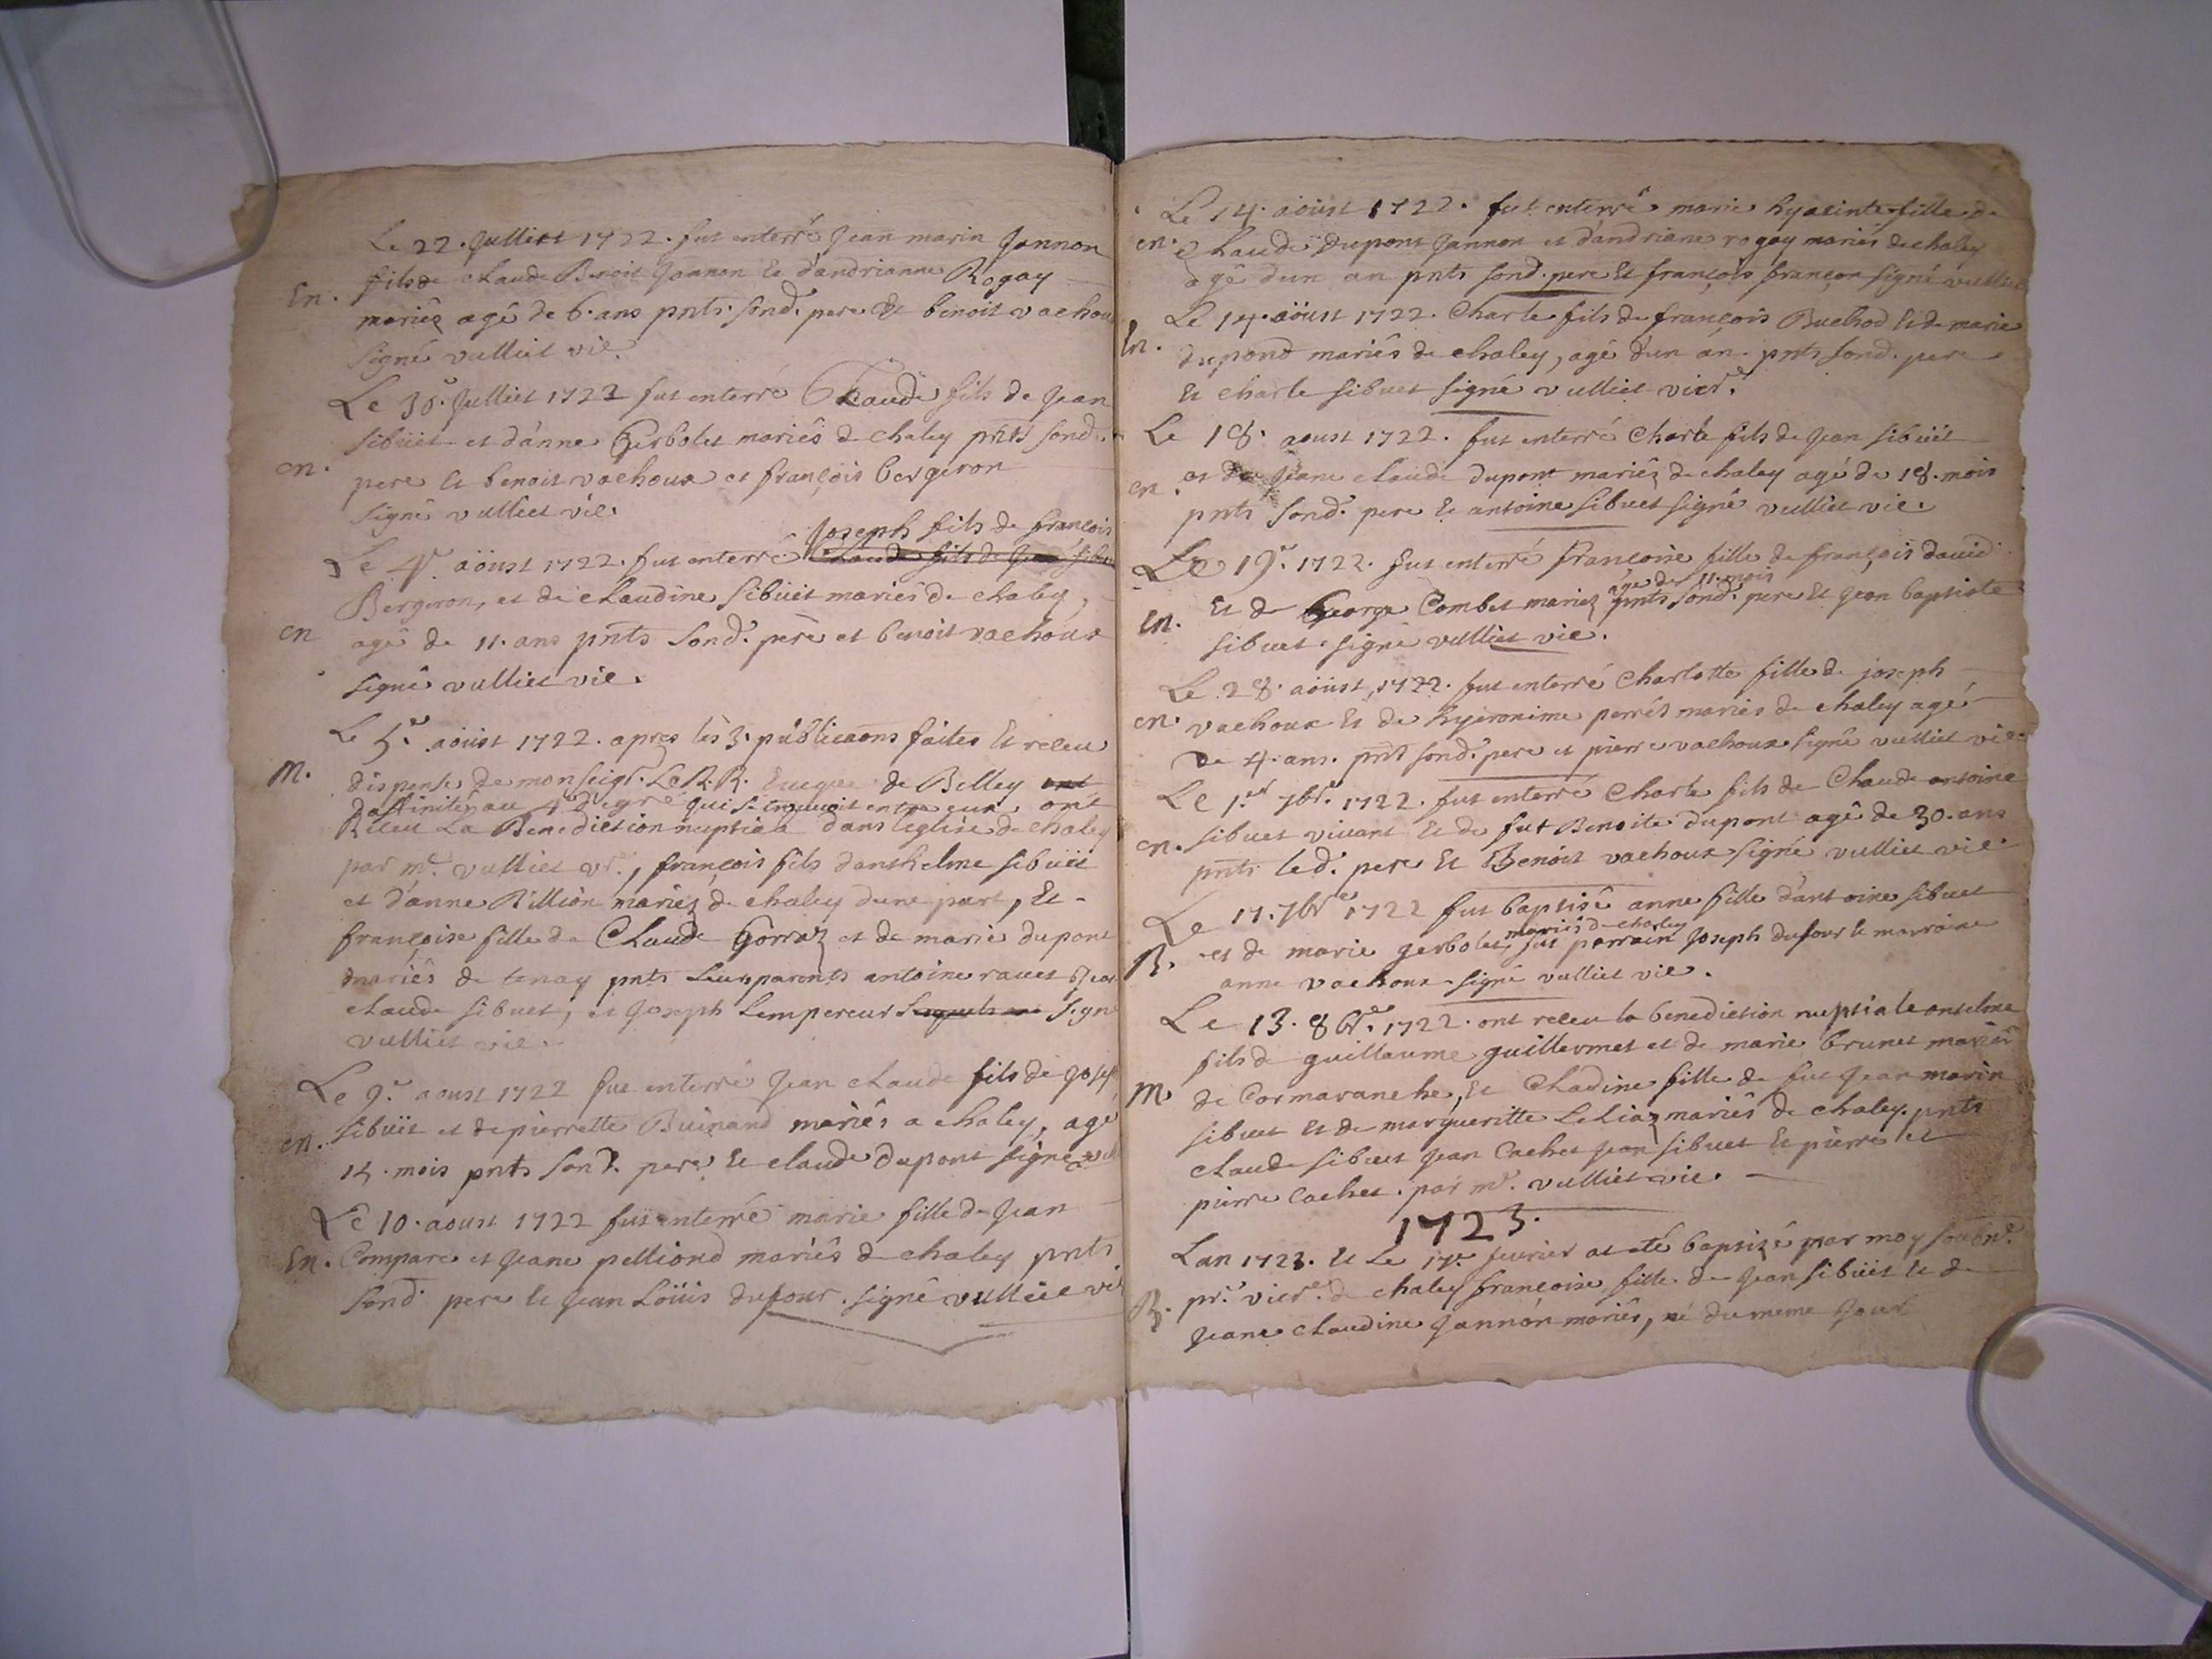 Le 22. Julliett 1722. fut enterré Jean marin Jannon
En. fils de claude Benoit Jannon et d'andrianne Rogay
mariéz agé de 6. ans pnts. sond. pere et benoit vachou
signé vulliet vic.
Le 30. Julliet 1722 fut enterré Claude fils de Jean
sibuët et d'anne Gerbolet mariés de chaley pnts sond.
en. pere et benoit vachoux et françois bergeron
signé vulliet vic.
Joseph fils de françois
Le 4e. aöust 1722. fut enterré Claude fils de Jean
Bergeron, et de claudine sibüet mariés de chaley,
en agé de 11. ans pnts sond. pere et benoit vachoux
signé vulliet vic.
Le 5e. aöust 1722. apres les 3. publicaons faites et receu
M. dispense de monseigr. Le R. R. Eveque de Belley ont
d'affinité au 4e degré qui se trouvoit entre eux ont
Receu La Benediction nuptiale dans l'eglise de chaley
par mr. vulliet vr., françois fils d'anthelme sibuët
et d'anne Billion mariéz de chaley d'une part, Et -
françoise fille de Claude Gorraz et de marie dupont
mariés de tenay pnts Leurs parents antoine ravet et Jean
claude sibuet, et Joseph Lempereur Lesquels ont signé
vulliet vic.
Le 9e. aoust 1722 fut enterré Jean claude fils de Joseph
en. sibüet et de pierrette Buinand mariés a chaley, agé
14. mois pnts sond. pere et claude dupont signé vull
Le 10. aoust 1722 fut enterré marie fille de Jean
En. Compare et Jeane pelliond mariés de chaley pnts
sond. pere et Jean Loüis dufour. signé vulliet vic
Le 14. aöust 1722. fut enterré marie hyacinte fille de
en. claude Dupont Jannon et d'andriane rogay mariés de chaley
agé d'un an pnts sond. pere et françois françon signé vulliet
Le 14. aöust 1722. Charle fils de françois Buchod et de marie
En. dupond mariés de chaley, agé d'un an. pnts sond. pere
et charle sibuet signé vulliet vicre.
Le 18. aoust 1722. fut enterré charle fils de Jean sibüet
en. et de Jeane claude dupont mariéz de chaley agé de 18. mois
pnts sond. pere et antoine sibuet signé vulliet vic.
Le 19e. 1722. fut enterré françoise fille de françois david
agé de 11. mois
En. et de George Combet mariéz pnts sond. pere et Jean baptiste
sibuet. signé vulliet vic.
Le 28. aöust, 1722. fut enterré Charlotte fille de joseph
en. vachoux et de hyeronime perrét mariés de chaley agé
de 4. ans. pnt sond. pere et pierre vachoux signé vulliet vic.
Le 1er. 7bre. 1722. fut enterré Charle fils de Claude antoine
en. sibuet vivant et de fut Benoite dupont agé de 30. ans
pnts led. pere et Benoit vachoux signé vulliet vic.
Le 17. 7bre 1722 fut baptisé anne fille d'antoine sibuet
mariés de chaley
B. et de marie gerbolet, fut parrain Joseph dufour le marraine
anne vachoux signé vulliet vic.
Le 13. 8bre. 1722. ont receu la benediction nuptiale antelme
fils de guillaume guillermet et de marie brunet mariés
M. de Cormaranche, et Claudine fille de fut Jean marin
sibuet et de margueritte Leliaz mariés de chaley. pnts
claude sibuet Jean Cachet Jean sibuet et pierre et
pierre Cachet. par mr. vulliet vic.
1723.
Lan 1723. et Le 17e. fevrier at eté baptizé par moy soubné.
B. pr. vicre. de chaley françoise fille de Jean sibüet et de
Jeane claudine Jannon mariés, né du meme Jour